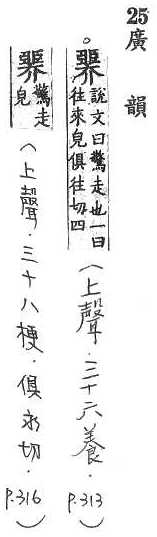 25 廣韻
。臩 說文曰驚走也一曰往來皃俱往切四 (上聲．三十六養．P.313)
臩 驚走皃 (上聲．三十八梗．俱永切．P.316)